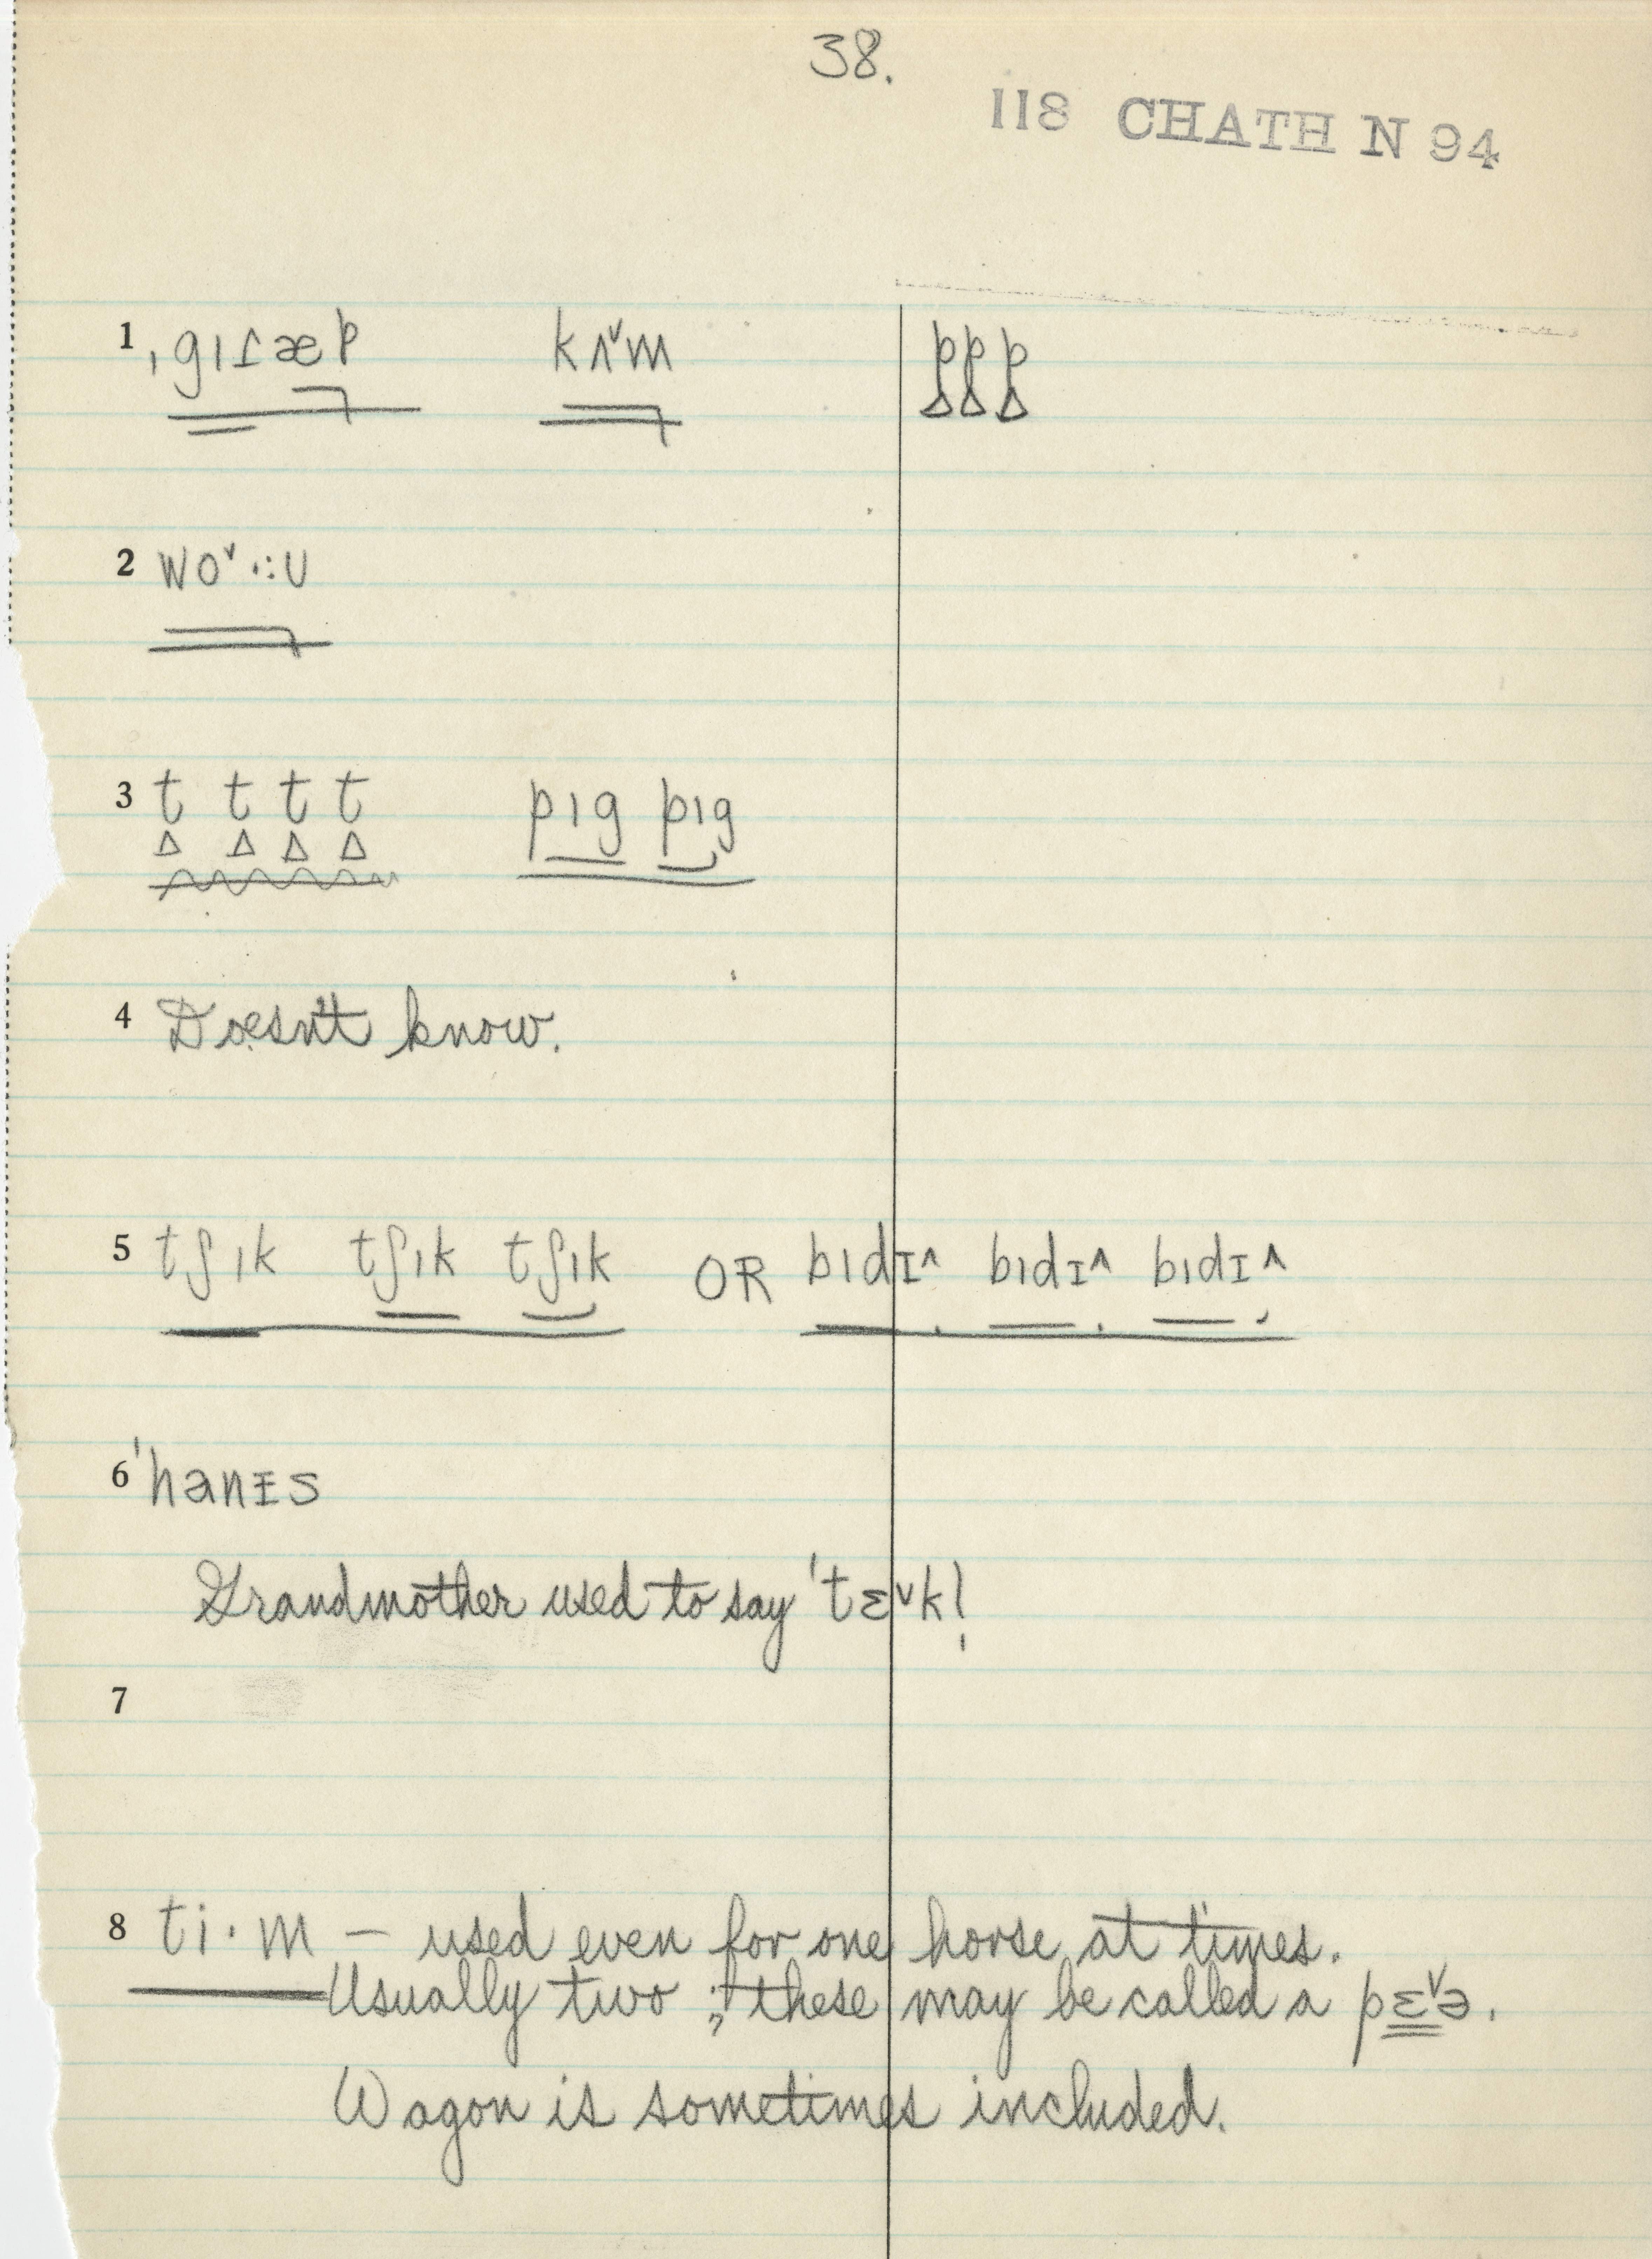 38.
118 CHATH N 94
1 ˌgɪɾæp kʌ˅m ppp
2 wo˅·:ʊ
3 t t t t pɪg pɪg
4 Doesn't know.
5 tʃɪk tʃɪk tʃɪk OR bɪdɪ^ bɪdɪ^ bɪdɪ^
6 ˈhanɪs
Grandmother used to say ˈtɛ˅k!
7
8 ti·m — used even for one horse at times.
Usually two; these may be called a pɛ˅ə.
Wagon is sometimes included.